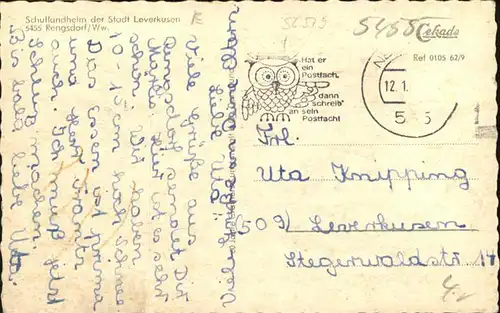 Schullandheim der Stadt Leverkusen
5455 Rengsdorf/Ww.
Liebe Uta!
Viele Grüße aus
Rengsdorf sendet Dir
Hier ist es sehr
schön. Wir haben
10-15 cm hoch Schnee.
Das Essen ist prima
und Herr
auch. Ich muß jetzt
Schluß machen.
Bis bald liebe Uta.
Viele an Deine
5455
Cekade
Ref 0105 62/9
Hat er
ein
Postfach,
dann
schreib'
an sein
Postfach!
12.1.
Frl.
Uta Knipping
509 Leverkusen
Stegerwaldstr 14
4,-